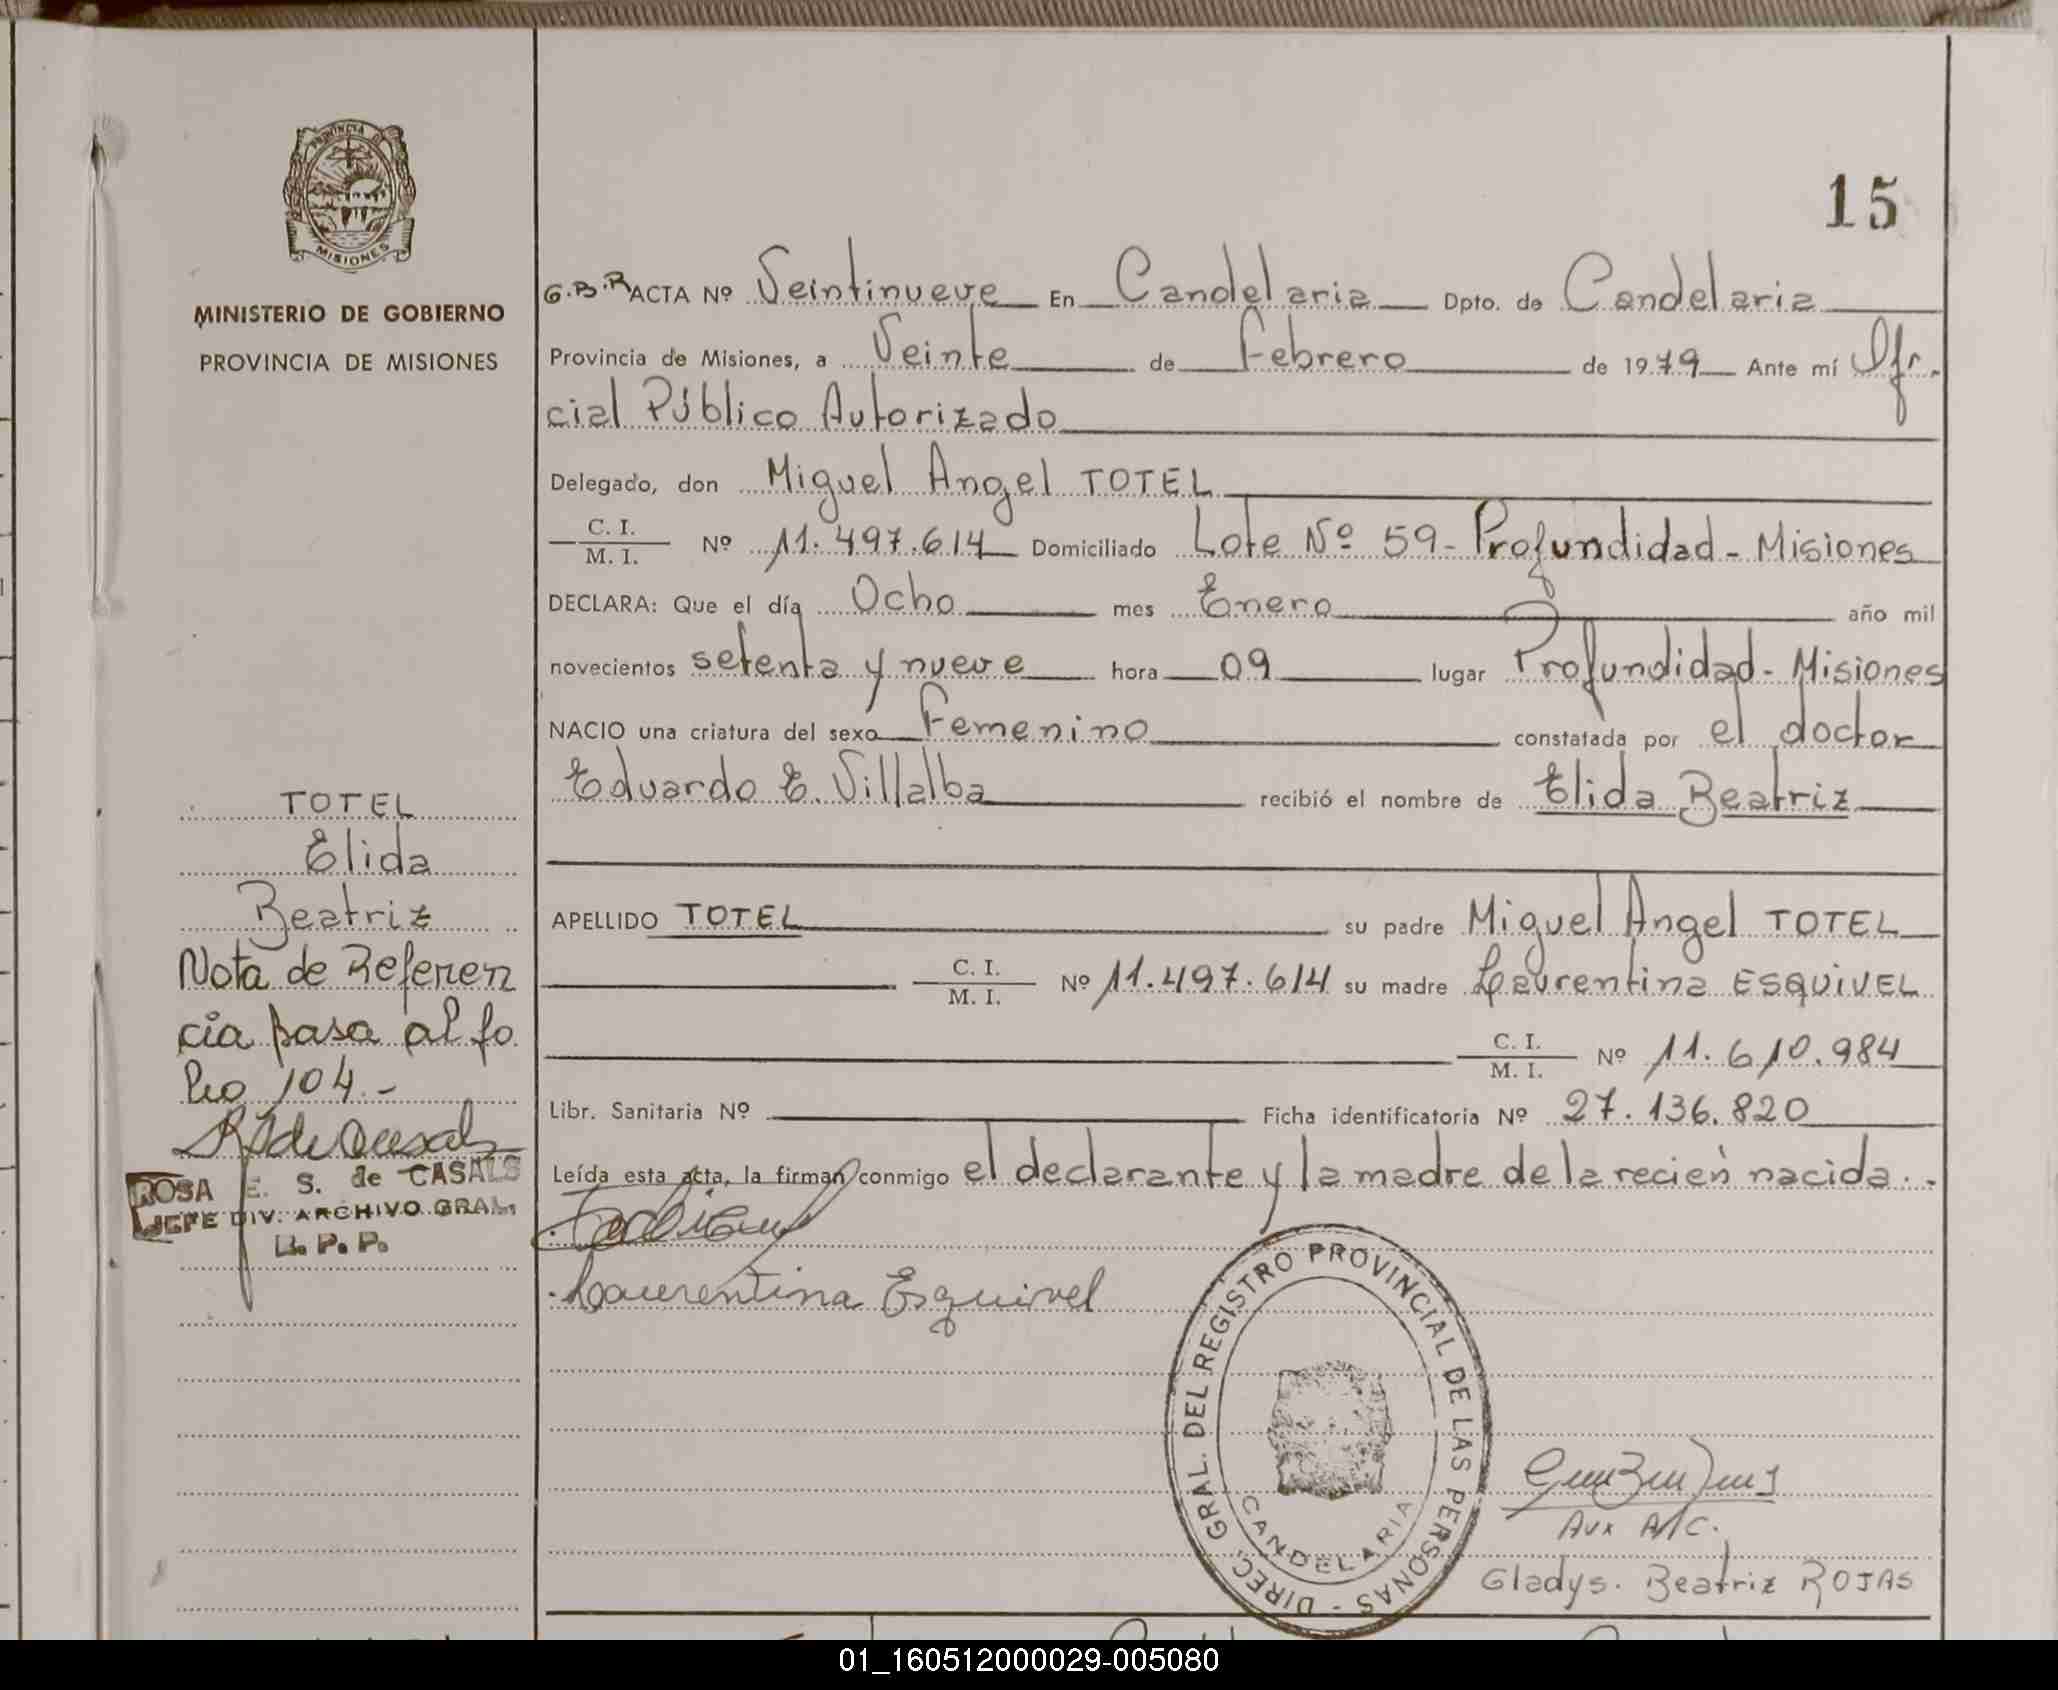 PROVINCIA DE
MISIONES
MINISTERIO DE GOBIERNO
PROVINCIA DE MISIONES
TOTEL
Elida
Beatriz
Nota de Referen
cia pasa al fo
lio 104.-
ROSA E. S. de CASALS
JEFE DIV. ARCHIVO GRAL.
R. P. P.
15
G.B.R ACTA Nº Veintinueve En Candelaria Dpto. de Candelaria
Provincia de Misiones, a Veinte de Febrero de 1979 Ante mí Ofi-
cial Público Autorizado
Delegado, don Miguel Angel TOTEL
C. I.
M. I. Nº 11.497.614 Domiciliado Lote Nº 59- Profundidad - Misiones
DECLARA: Que el día Ocho mes Enero año mil
novecientos setenta y nueve hora 09 lugar Profundidad - Misiones
NACIO una criatura del sexo Femenino constatada por el doctor
Eduardo E. Villalba recibió el nombre de Elida Beatriz
APELLIDO TOTEL su padre Miguel Angel TOTEL
C. I.
M. I. Nº 11.497.614 su madre Laurentina ESQUIVEL
C. I.
M. I. Nº 11.610.984
Libr. Sanitaria Nº Ficha identificatoria Nº 27.136.820
Leída esta acta, la firman conmigo el declarante y la madre de la recién nacida.-
Laurentina Esquivel
DIREC. GRAL. DEL REGISTRO PROVINCIAL DE LAS PERSONAS -
CANDELARIA
Aux A/C.
Gladys. Beatriz ROJAS
01_160512000029-005080